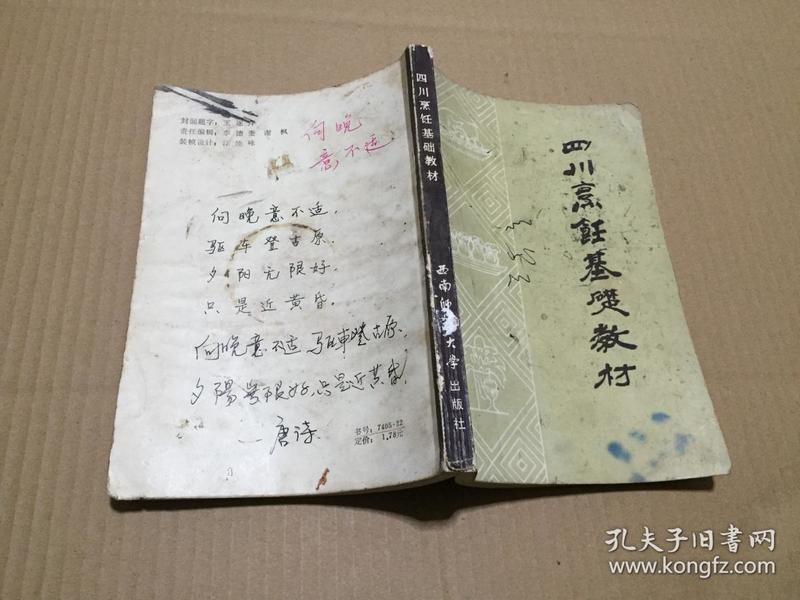 封面题字：
责任编辑：李德奎 谢枫
装帧设计：
向晚
意不适
向晚意不适，
驱车登古原。
夕阳无限好，
只是近黄昏。
向晚意不适 驱車登古原，
夕陽無限好，只是近黄昏，
—唐诗
书号：7405·22
定价：1.78元
四川烹饪基础教材
西南师 大学出版社
四川烹飪基礎教材
孔夫子旧书网
www.kongfz.com